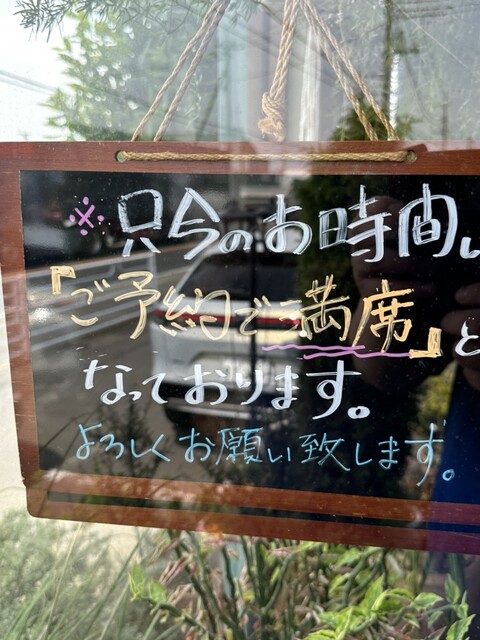 ※只今のお時間
『ご予約で満席』と
なっております。
よろしくお願い致します。